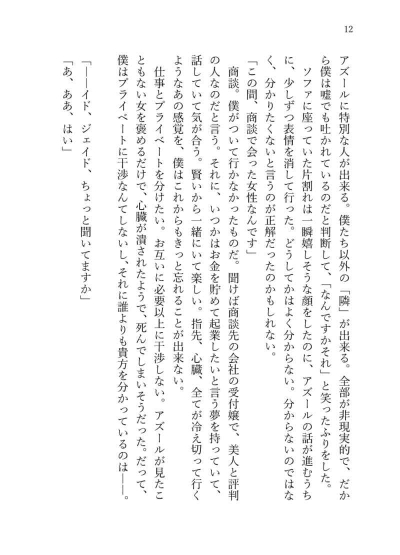 12
アズールに特別な人が出来る。僕たち以外の「隣」が出来る。全部が非現実的で、だか
ら僕は嘘でも吐かれているのだと判断して、「なんですかそれ」と笑ったふりをした。
ソファに座っていた片割れは一瞬嬉しそうな顔をしたのに、アズールの話が進むうち
に、少しずつ表情を消して行った。どうしてかはよく分からない。分からないのではな
く、分かりたくないと言うのが正解だったのかもしれない。
「この間、商談で会った女性なんです」
商談。僕がついて行かなかったものだ。聞けば商談先の会社の受付嬢で、美人と評判
の人なのだと言う。それに、いつかはお金を貯めて起業したいと言う夢を持っていて、
話していて気が合う。賢いから一緒にいて楽しい。指先、心臓、全てが冷え切って行く
ようなあの感覚を、僕はこれからもきっと忘れることが出来ない。
仕事とプライベートを分けたい。お互いに必要以上に干渉しない。アズールが見たこ
ともない女を褒めるだけで、心臓が潰されたようで、死んでしまいそうだった。だって、
僕はプライベートに干渉なんてしないし、それに誰よりも貴方を分かっているのは――。
「――イド、ジェイド、ちょっと聞いてますか」
「あ、ああ、はい」